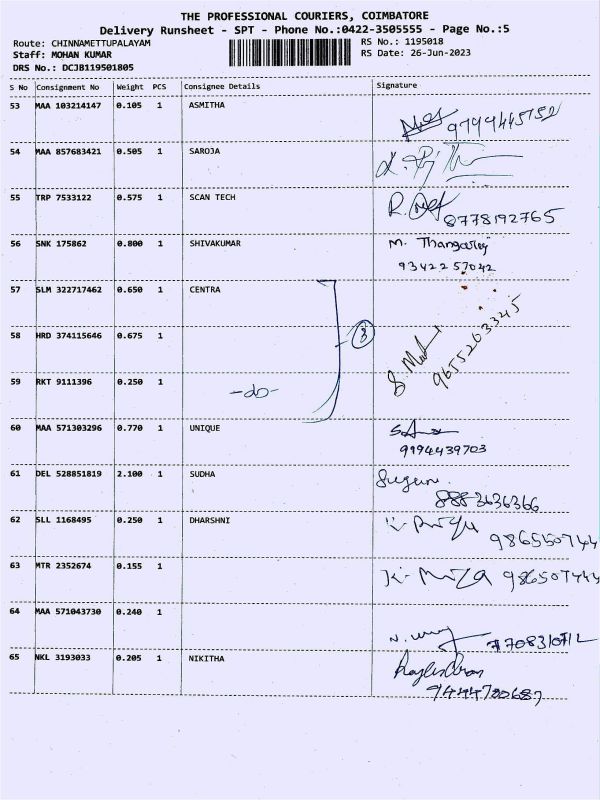 THE PROFESSIONAL COURIERS, COIMBATORE
Delivery Runsheet - SPT - Phone No.:0422-3505555 - Page No.:5
Route: CHINNAMETTUPALAYAM RS No.: 1195018
Staff: MOHAN KUMAR RS Date: 26-Jun-2023
DRS No.: DCJB119501805
S No Consignment No Weight PCS Consignee Details Signature
53 MAA 103214147 0.105 1 ASMITHA
9799445752
54 MAA 857683421 0.505 1 SAROJA
55 TRP 7533122 0.575 1 SCAN TECH
8778192765
56 SNK 175862 0.800 1 SHIVAKUMAR M. Thangaraj
9342257042
57 SLM 322717462 0.650 1 CENTRA
58 HRD 374115646 0.675 1 3
9655203345
59 RKT 9111396 0.250 1 -do-
60 MAA 571303296 0.770 1 UNIQUE
9994439703
61 DEL 528851819 2.100 1 SUDHA
8883636366
62 SLL 1168495 0.250 1 DHARSHNI
986550744
63 MTR 2352674 0.155 1
64 MAA 571043730 0.240 1
65 NKL 3193033 0.205 1 NIKITHA
9444780687